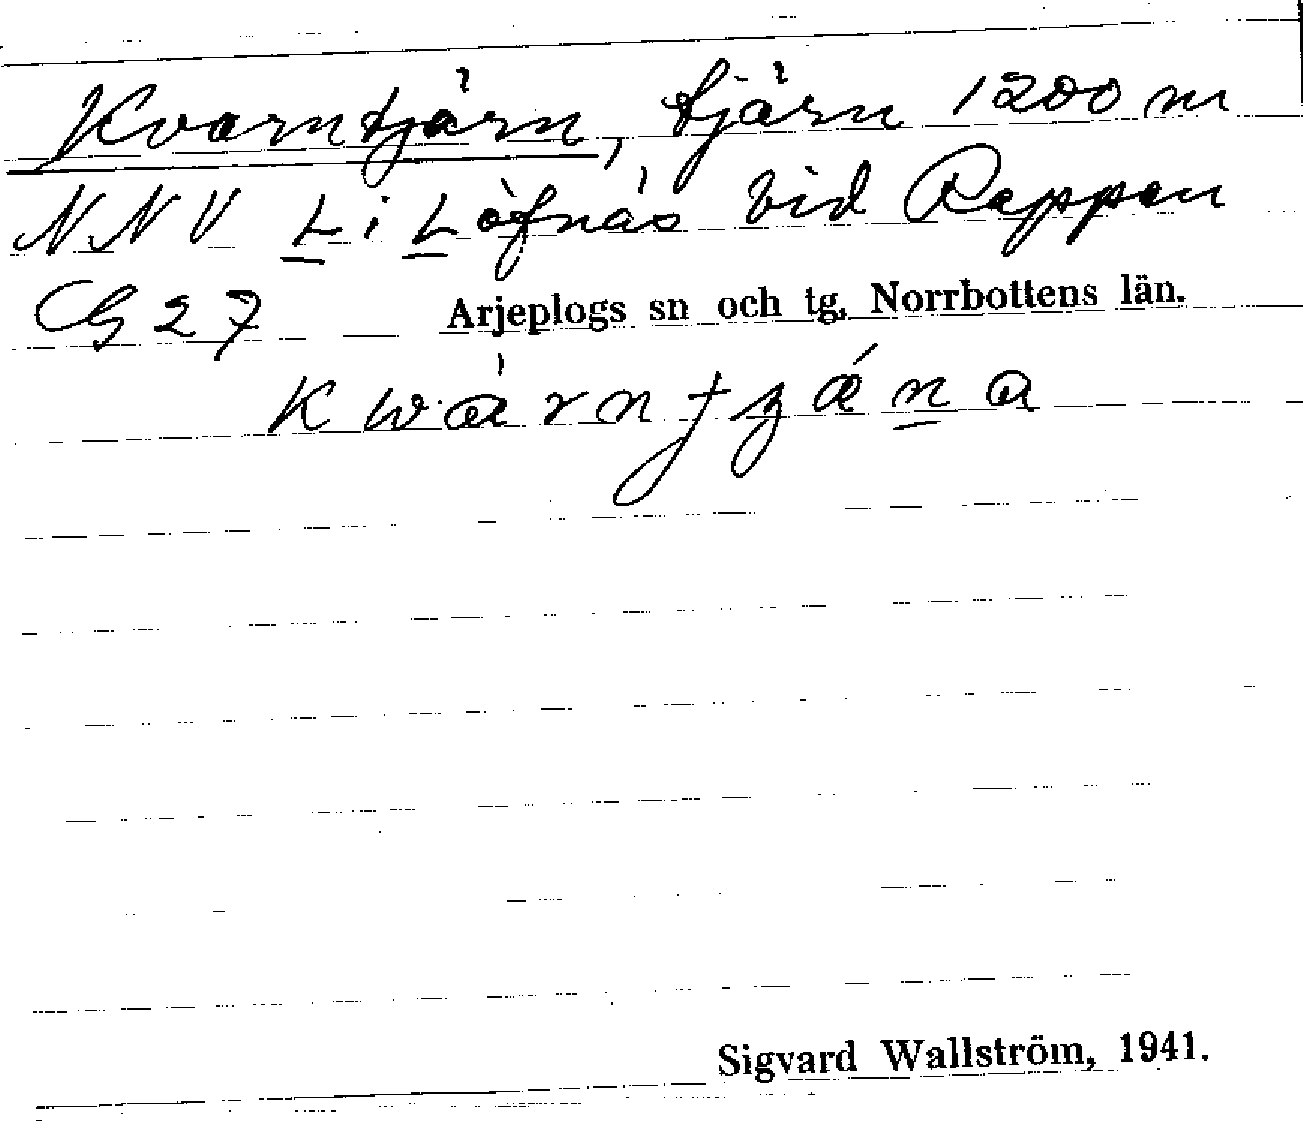 Kvarntjärn, tjärn 1200 m
NNV L i Löfnäs vid Rappen
G 27 Arjeplogs sn och tg, Norrbottens län.
Sigvard Wallström, 1941.